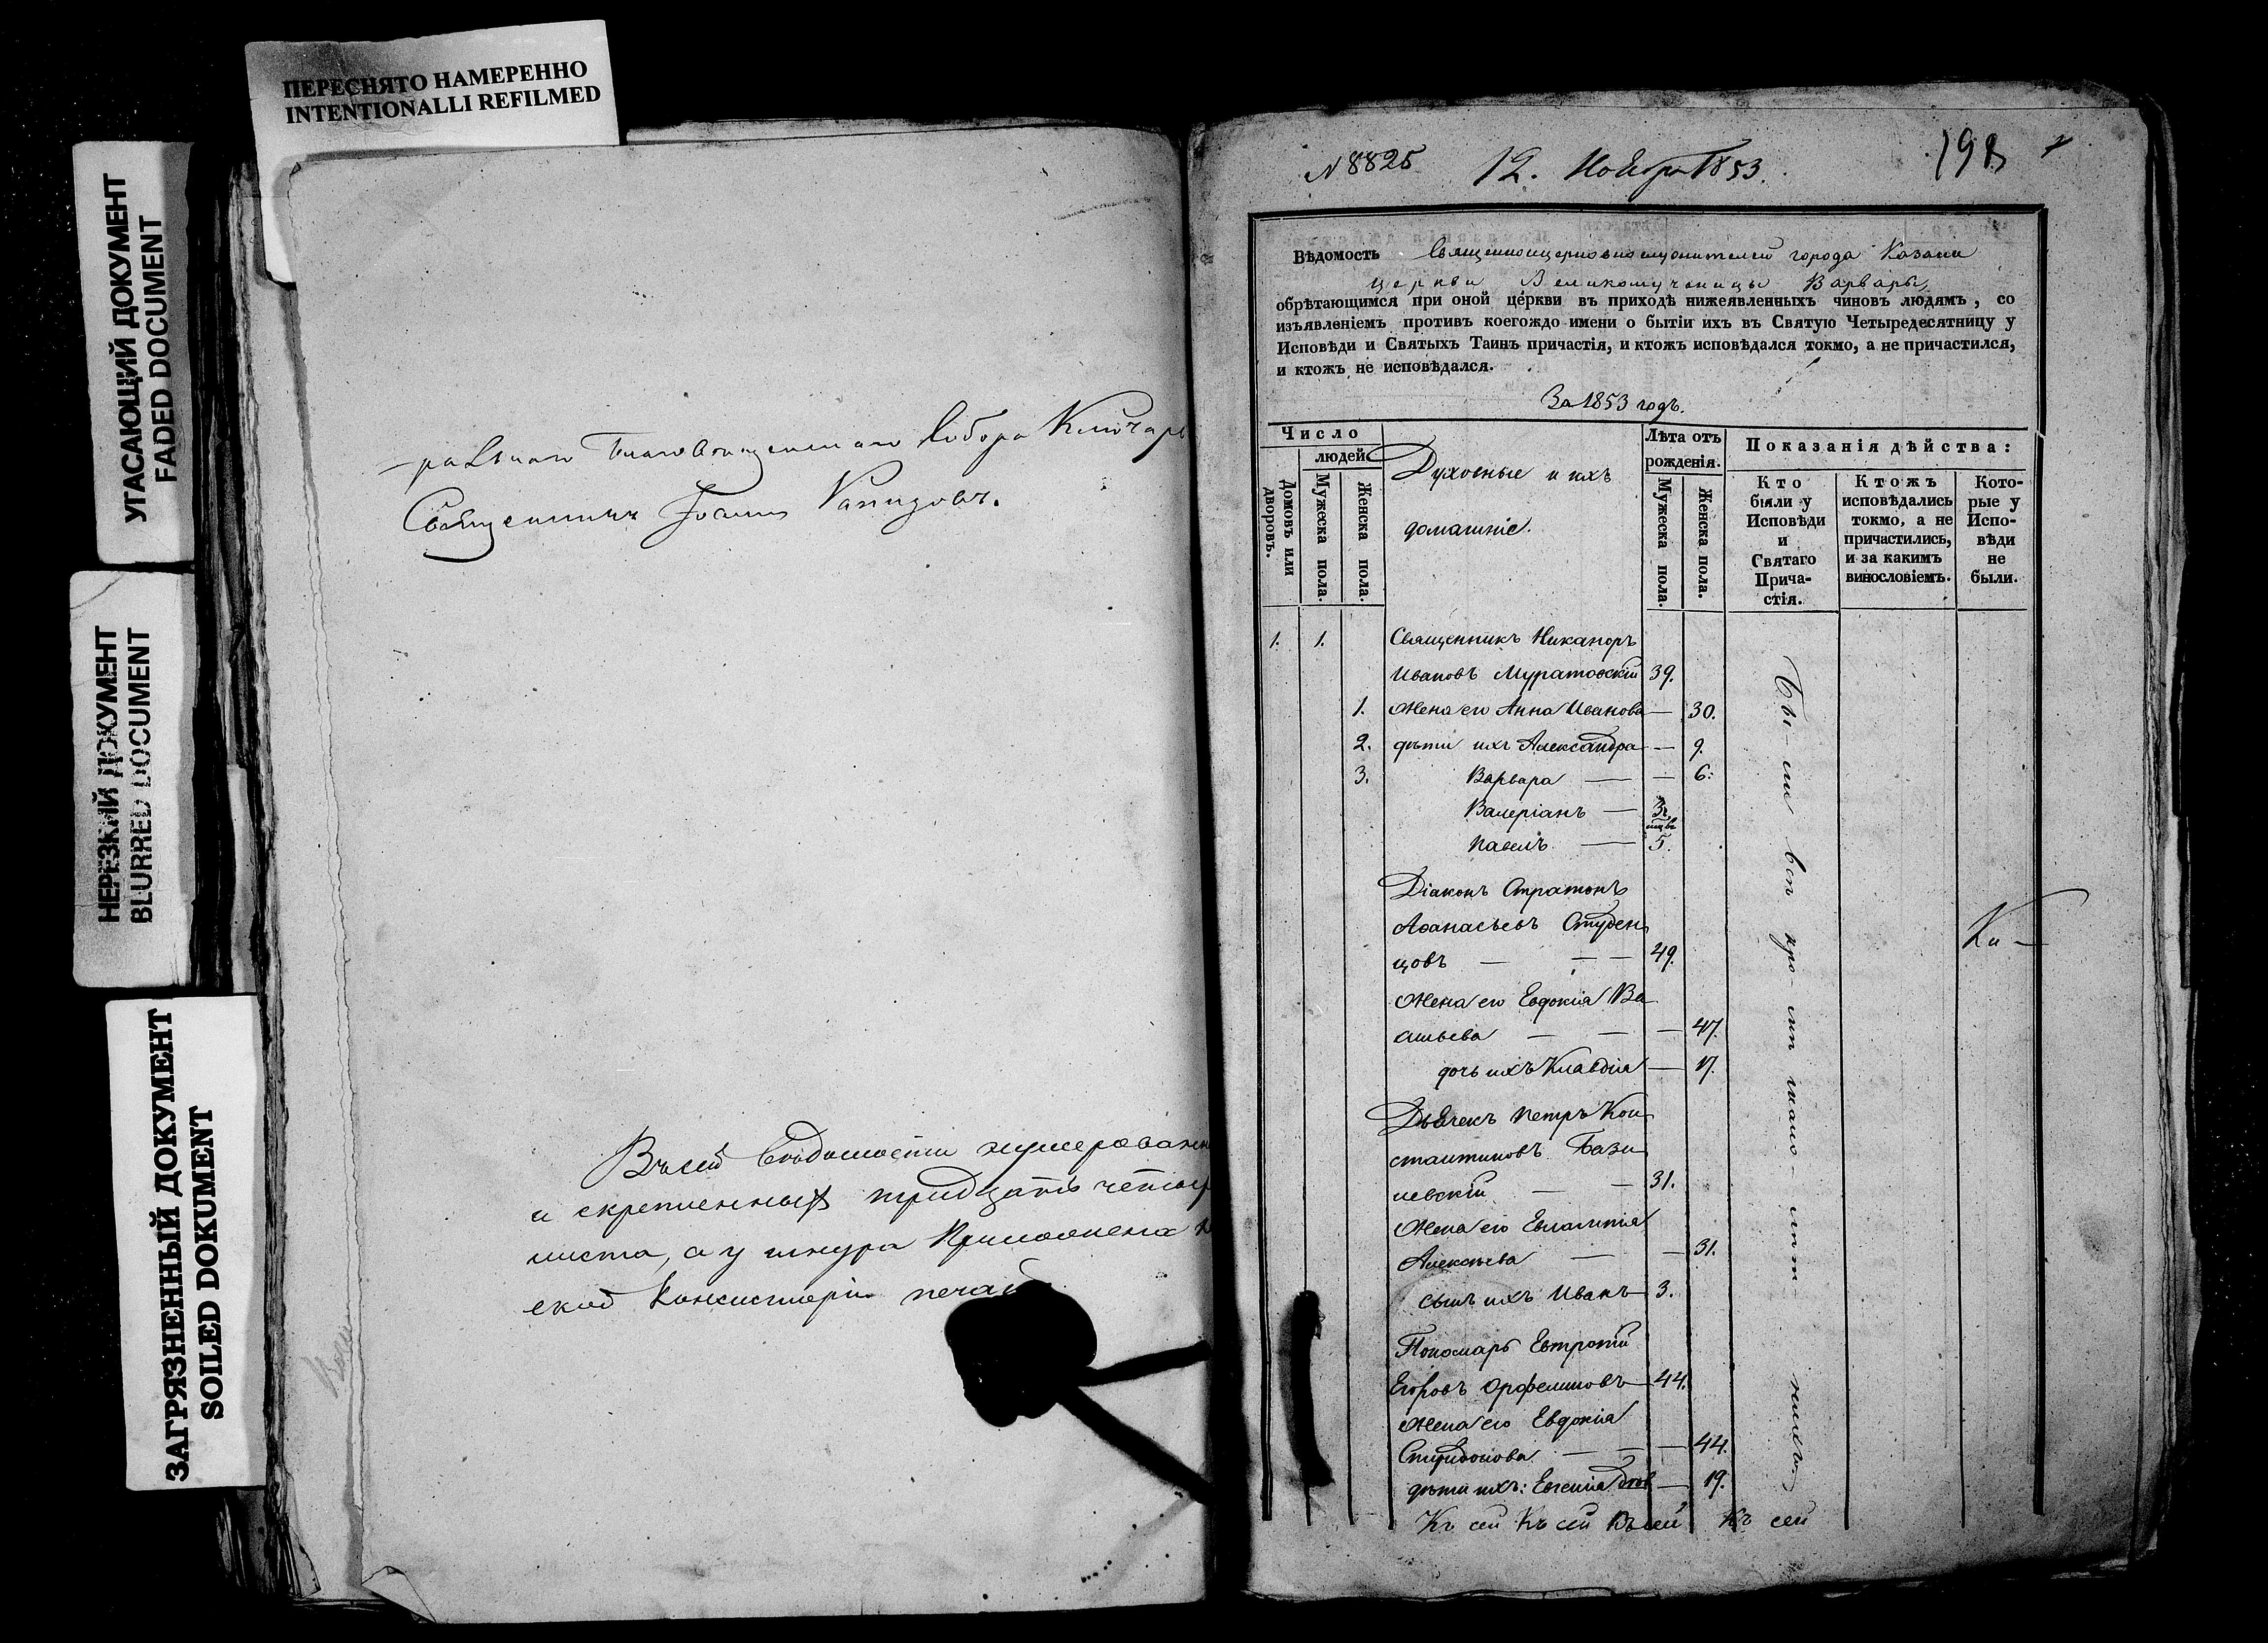 ПЕРЕСНЯТО НАМЕРЕННО
INTENTIONALLI REFILMED
УГАСАЮЩИЙ ДОКУМЕНТ
FADED DOCUMENT
НЕРЕЗКИЙ ДОКУМЕНТ
BLURRED DOCUMENT
ЗАГРЯЗНЕННЫЙ ДОКУМЕНТ
SOILED DOKUMENT
-ральнаго Благовещенскаго Собора Ключарь
Священникъ Іоаннъ
Въ сей ведомости нумерован
и скрепленныхъ тридцать четыр
листа, а у шнура приложена
ской Консисторіи печа
N 8825 12. Ноября 1853. 198
Вѣдомость Священноцерковнослужителей города Казани
церкви Великомученицы Варвары,
обрѣтающимся при оной це́ркви въ приходѣ нижеявленныхъ чиновъ людямъ, со
изъявленіемъ противъ коегождо имени о бытіи ихъ въ Святую Четыредесятницу у
Исповѣди и Святыхъ Таинъ причастія, и ктожъ исповѣдался токмо, а не причастился,
и ктожъ не исповѣдался.
За 1853 годъ.
Число
людей
Домовъ или дворовъ.
Мужеска пола.
Женска пола.
Духовные и ихъ
домашніе.
Лѣта отъ
рожденія.
Мужеска пола.
Женска пола.
Показанія дѣйства:
Кто
были у
Исповѣди
и
Святаго
Прича-
стія.
Ктожъ
исповѣдались
токмо, а не
причастились,
и за какимъ
винословіемъ.
Кото-
рые у
Испо-
вѣди
не
были.
1. 1. Священникъ Никаноръ
Ивановъ Муратовскій 39.
1. Жена его Анна Иванова — 30.
2. дѣти ихъ Александра — 9.
3. Варвара — — 6.
Валеріанъ — 3
Павелъ — 5.
Діаконъ Стратонъ
Аѳанасьевъ Студен
цовъ — — — 49.
Жена его Евдокія Ва
сильева — — — 47.
дочь ихъ Клавдія — 17.
Дьячекъ Петръ Кон
стантиновъ Бази
левскій — — 31.
Жена его Евлампія
Алексѣева — — 31.
сынъ ихъ Иванъ 3.
Пономарь Евтропій
Егоровъ Орфелиновъ 44.
Жена его Евдокія
Спиридонова — — — 44.
дѣти ихъ: Евгенія — 19.
Бы-ли всѣ кро-мѣ мало-лѣт-нихъ
Къ сей Къ сей Въ сей Къ сей